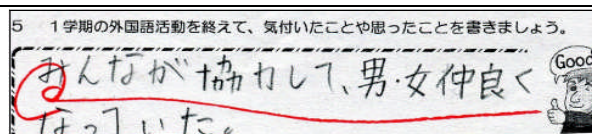 5 1学期の外国語活動を終えて、気付いたことや思ったことを書きましょう。
みんなが協力して、男・女仲良く
Good
なっていた。